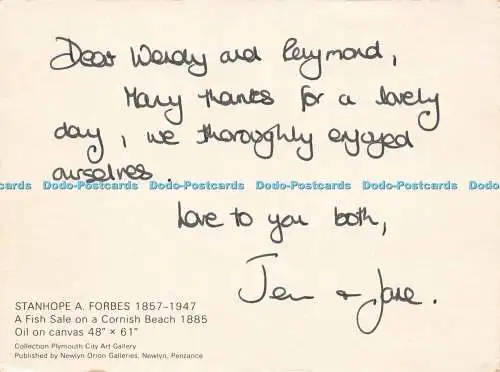 Dear Wendy and Reymond,
Many thanks for a lovely
day, we thoroughly enjoyed
ourselves.
Dodo-Postcards Dodo-Postcards Dodo-Postcards Dodo-Postcards
Love to you both,
Jen + Jane.
STANHOPE A. FORBES 1857-1947
A Fish Sale on a Cornish Beach 1885
Oil on canvas 48" × 61"
Collection Plymouth City Art Gallery
Published by Newlyn Orion Galleries, Newlyn, Penzance